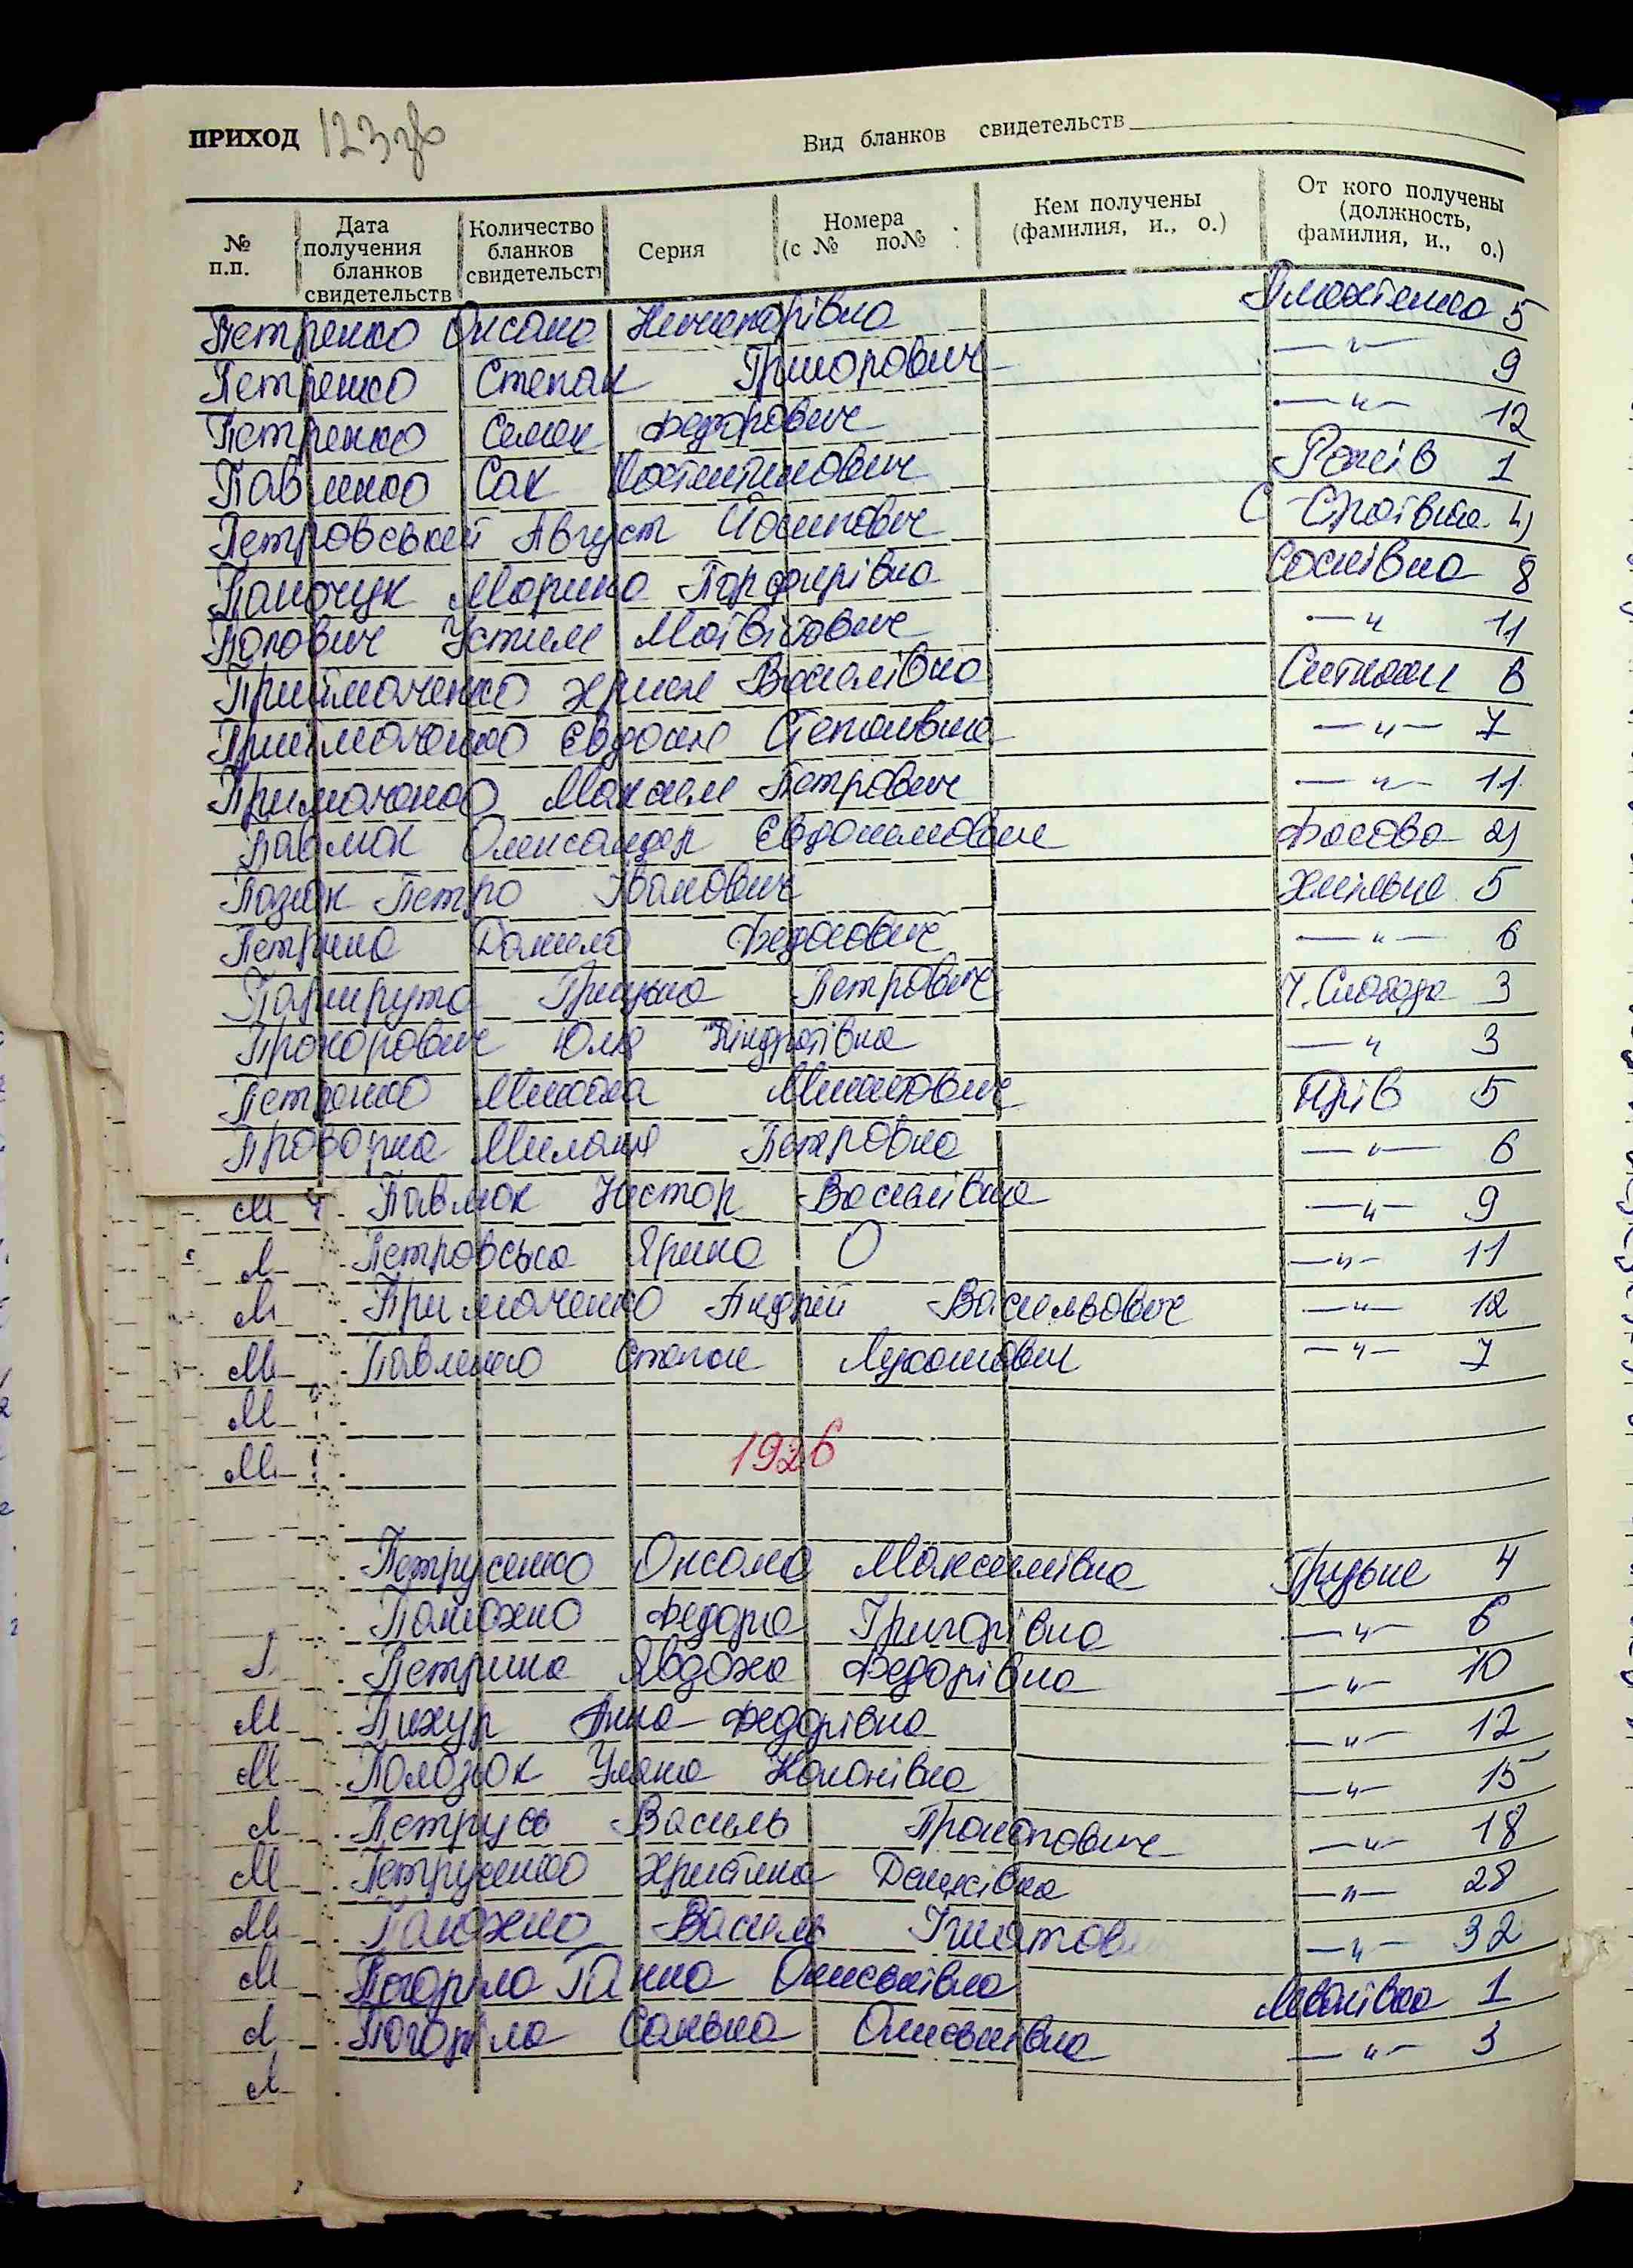 ПРИХОД 123 зв
Вид бланков свидетельств
№ п.п. Дата получения бланков свидетельств Количество бланков свидетельств Серия Номера (с № по№ Кем получены (фамилия, и., о.) От кого получены (должность, фамилия, и., о.)
Петренко Оксана Ничипорівна 5
Петренко Степан Григорович —"— 9
Петренко Семен Федорович —"— 12
Павленко Сак Костянтинович Рожів 1
Петровський Август Йосипович
Панчук Марина Порфирівна Соснівка 8
Попович Устим Матвійович —"— 11
Приймаченко Христя Василівна Ситняки 6
Приймаченко Євдокія Степанівна —"— 7
Примаченко Максим Петрович —"— 11
Павлюк Олександер Євдокимович Фасова
Позняк Петро Іванович Хмільна 5
Петрина Данило Федосович —"— 6
Грицько Петрович Ч. Слобода 3
Прохорович Юлія Кіндратівна —"— 3
Петренко Микола Юрів 5
Проворна Милания Петровна —"— 6
М Павлюк Нестор Василівна —"— 9
М Петровська Ярина О —"— 11
М Примаченко Андрій Васильович —"— 12
М Павленко Степан Лукашович —"— 7
М
М 1926
Петрусенко Оксана Максимівна Грузьке 4
Палюхно Федора Григорівна —"— 6
Петрина Явдоха Федорівна —"— 10
М Пихур Анна Федорівна —"— 12
М Полозюк Уляна Кононівна —"— 15
М Петрусь Василь Прокопович —"— 18
М Петрусенко Христина Денисівна —"— 28
М Палюхно Василь Ігнатов —"— 32
М Погоріла Ганна Олисеївна 1
М Погоріла Санька Олисеївна —"— 3
М